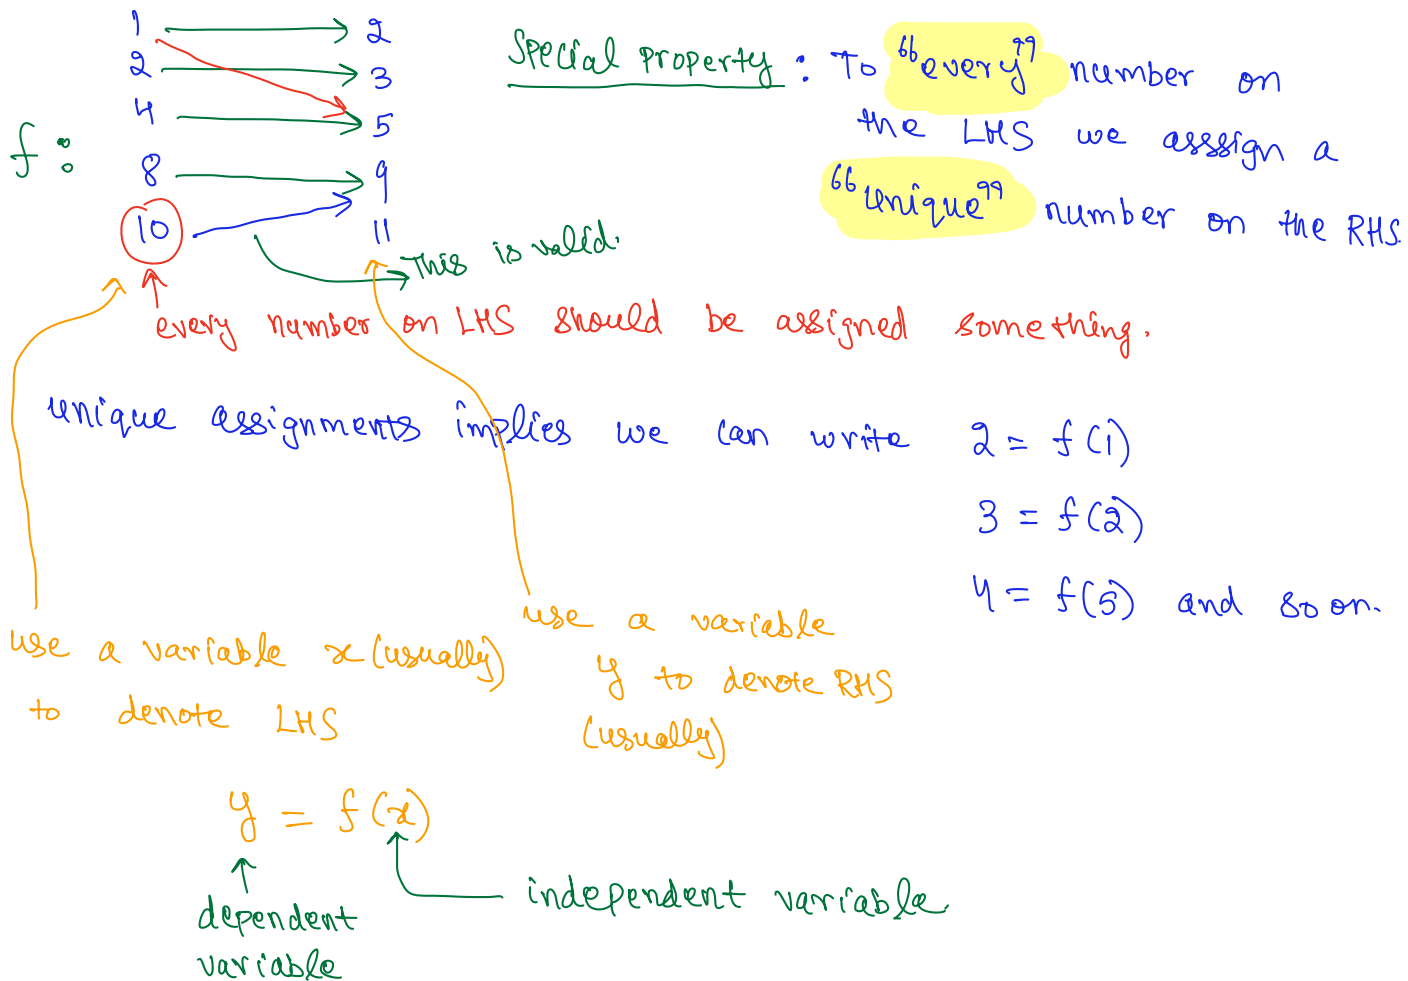 f :
1 → 2
2 → 3
4 → 5
8 → 9
10 → 11
Special property : To "every" number on
the LHS we asssign a
"unique" number on the RHS.
This is valid.
every number on LHS should be assigned something.
unique assignments implies we can write 2 = f(1)
3 = f(2)
4 = f(5) and so on.
use a variable x (usually)
to denote LHS
use a variable
y to denote RHS
(usually)
y = f(x)
dependent
variable
independent variable